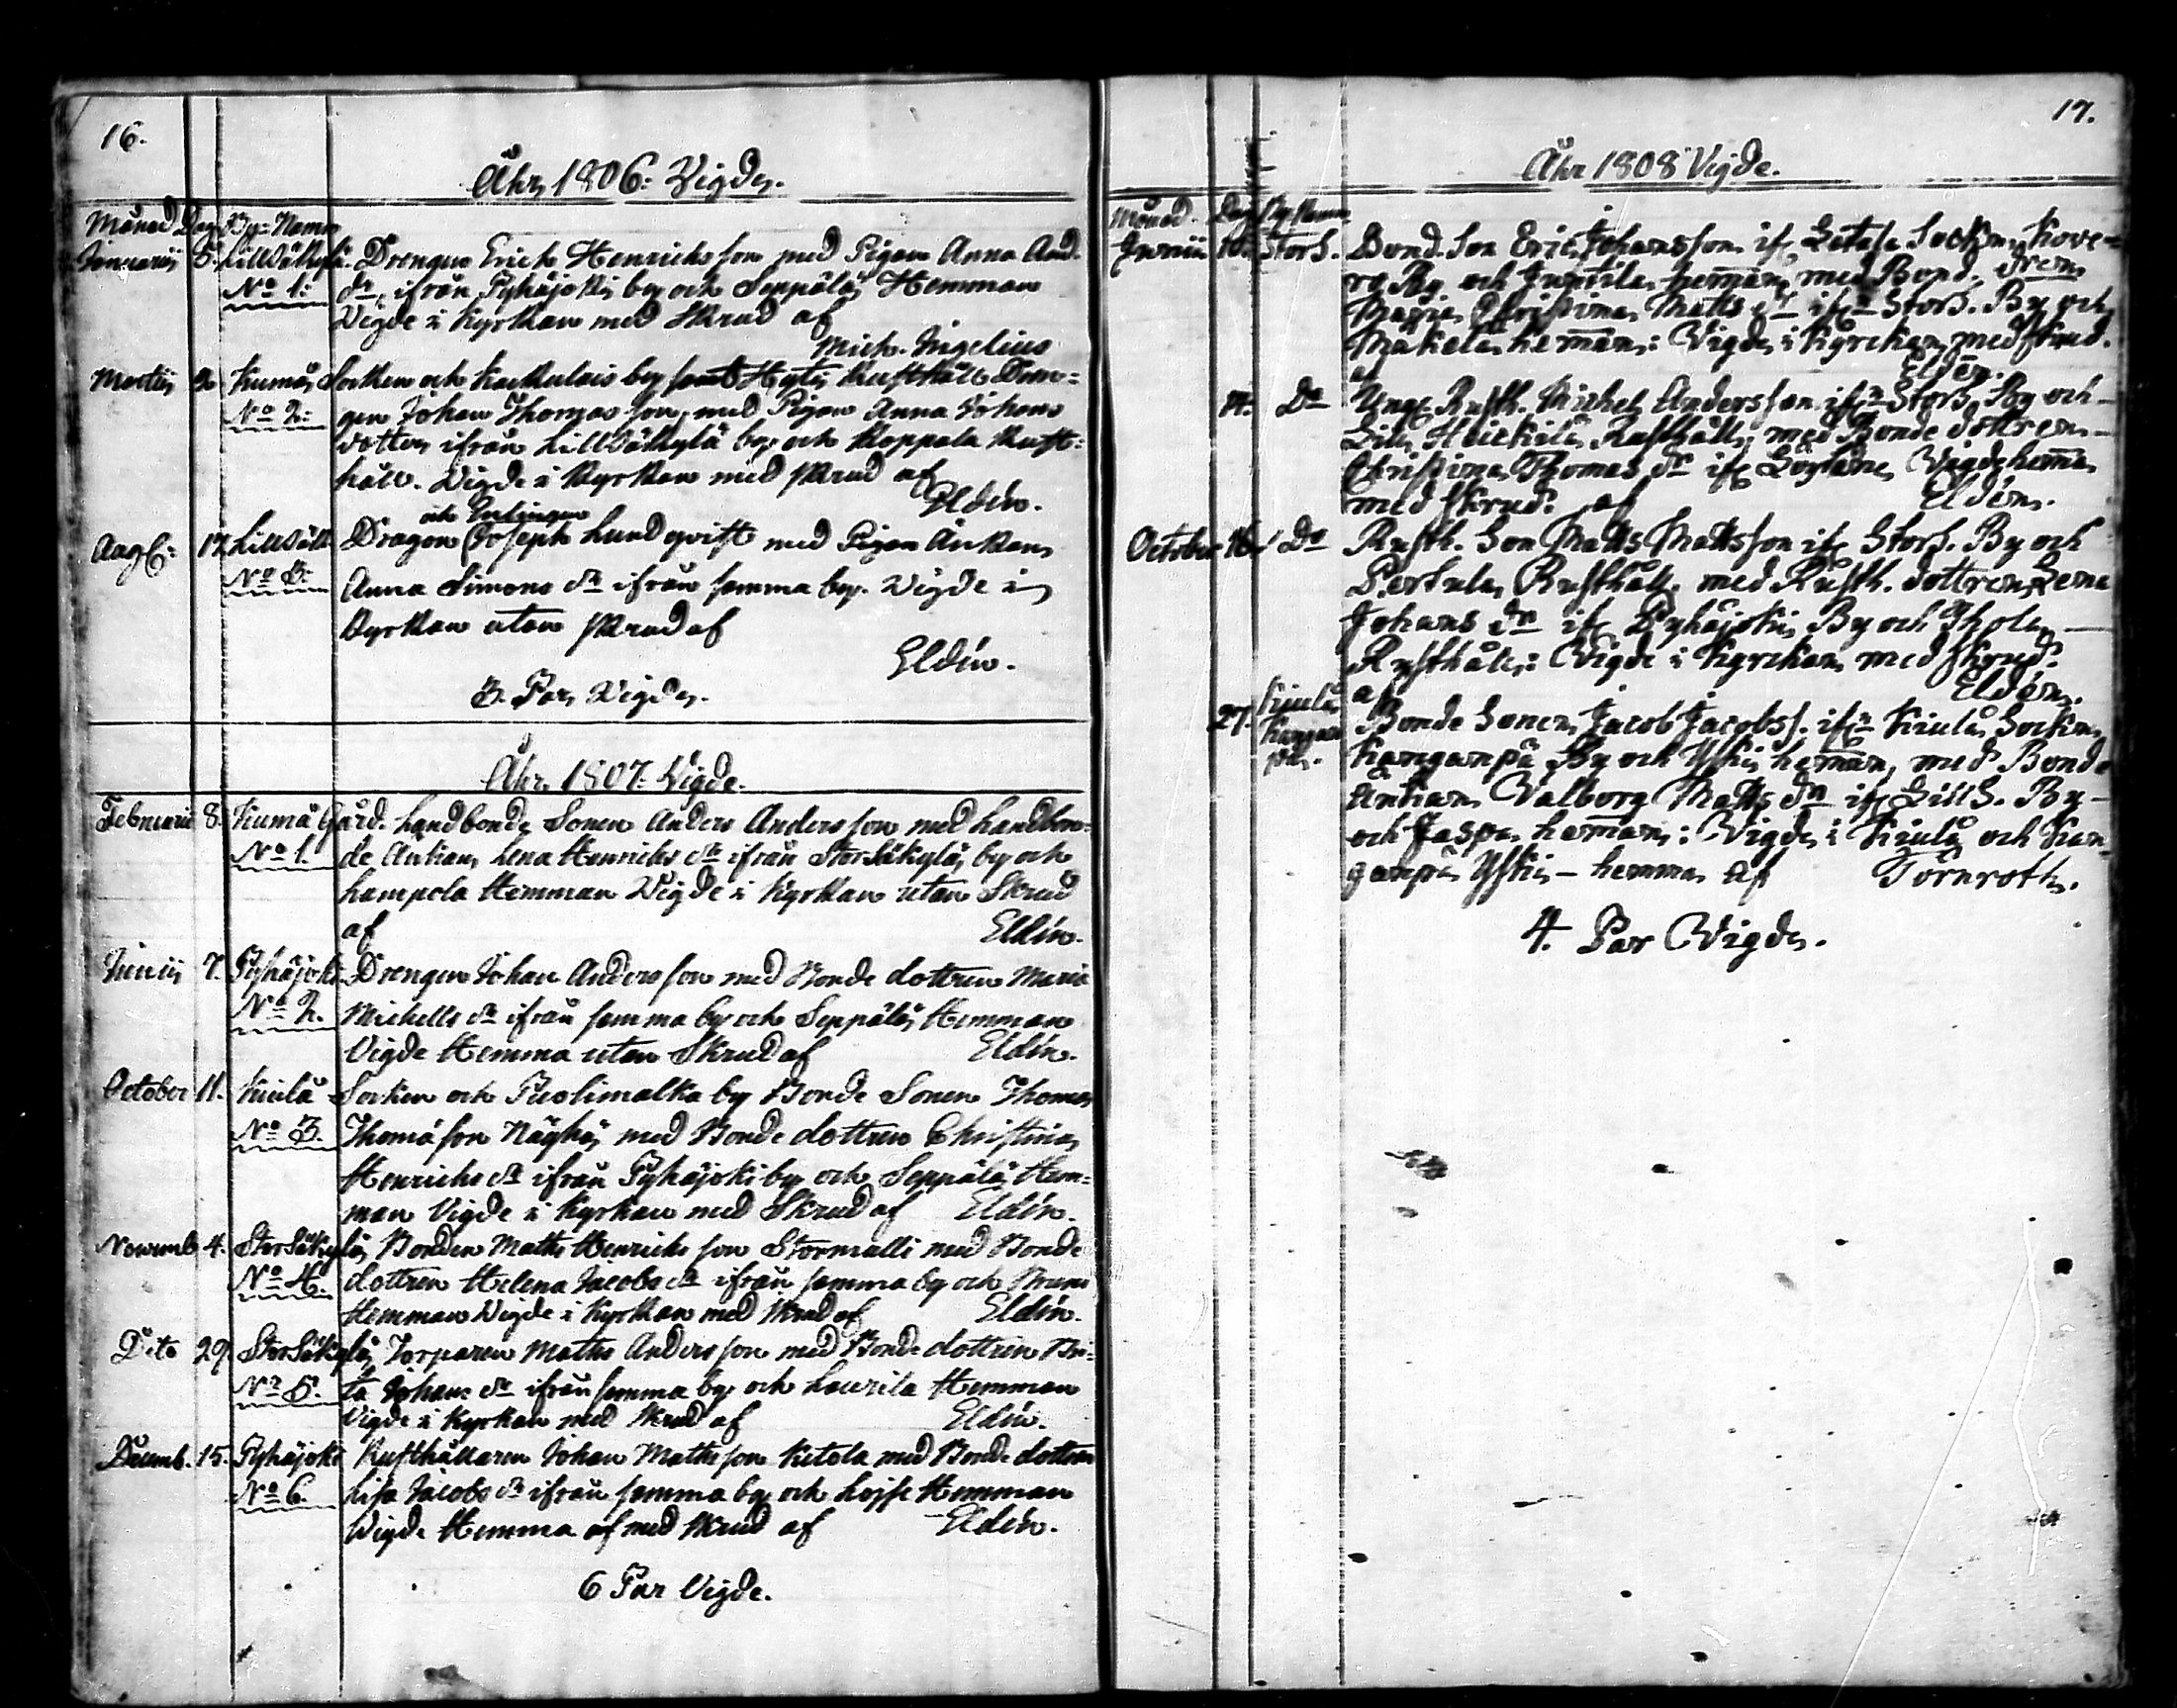 16.
Åhr, 1806: Vigde.
Månad Dag By-Namn
Januarii 5. LillSäkylä. Drengen Erich Henrichsson med Pigan Anna And.
No 1: dr, ifrån Pyhäjoki by och Seppälä Hemman
Vigde i Kyrkan med Skrud af
Mich. Ingelius
Martii 2. Kumå Socken och Kackulais by samt Rusthåll Dren=
No 2: gen Johan Thomasson, med Pigan Anna Johans
dotter, ifrån LillSäkylä by och Koppala Rust=
håll. Vigde i Kyrkan med skrud af
Eldén.
Augti: 17. LillSäk: Dragon Joseph Lundqvist med Pigan Änkan,
No 3: Anna Simons dr ifrån samma by. Vigde i
Kyrkan utan skrud af
Eldén.
3. Par, Vigde.
Åhr, 1807: Vigde.
Februarii 8. Kumå Gård. Landbonde Sonen Anders Andersson med Landbon=
No 1. de Änkan, Lena Henrichs dr ifrån StorSäkylä by och
Lampola Hemman Vigde i Kyrkan utan Skrud
af Eldén.
Junii 7. Pyhäjoki. Drengen Johan Andersson med Bonde dottren Maria
No 2. Michells dr ifrån samma by och Seppälä Hemman
Vigde Hemma utan Skrud af Eldén.
October 11. Kiulå Socken och Puolimatka by Bonde Sonen Thomas
No 3. Thomasson Näyhä med Bonde dottren Christina
Henrichs dr ifrån Pyhäjoki by och Seppälä Hem=
man Vigde i Kyrkan med Skrud af Eldén.
Novemb 4. StorSäkylä, Bonden Matts Henrichsson Stormalli med Bonde
No 4. dottren Helena Jacobs dr ifrån samma by och
Hemman Vigde i Kyrkan med skrud af Eldén.
Dito 29. StorSäkylä, Torparen Matts Andersson med Bonde dottren Bri=
No 5. ta Johans dr ifrån samma by och Laurila Hemman
Vigde i Kyrkan med Skrud af Eldén.
Decemb. 15. Pyhäjoki Rusthållaren Johan Mattsson Ketola med Bonde dottren
No 6. Lisa Jacobs dr ifrån samma by och Hemman
Vigde Hemma af med skrud af Eldén.
6 Par Vigde.
17.
Åhr 1808 Vigde.
Månad. Dag By Namn
Junii 10. StorS. Bond. Son Eric Johansson if, Socken,
ro By och hemman med Bond. dren
Maria Christina Matts dr ifn StorS. By och
Mäkelä hemman: Vigde i Kyrckan, med skrud.
af Eldén.
14. Do Unge Rusth. Michel Andersson, ifn StorS. By och
Lill Heickilä Rusthåll, med Bonde dottren
Christina Thomas dr if, Vigde hemma,
med Skrud. af Eldén.
October 16. Do Rusth. Son Matts Mattsson if, StorS. By och
Pertula, Rusthåll, med Rusth. dottren, Lena
Johans dr if, Pyhäjoki By och
Rusthåll: Vigde i Kyrckan med skrud.
af Eldén.
27. Kiulå, Kangan pä. Bonde Sonen, Jacob Jacobss. ifn Kiulå Socken,
Kanganpä By och Yski, hemman, med Bonde
Änkan, Valborg Matts dr if, LillS. By
och Jaspa, hemman: Vigde, i Kiulå och Kan
ganpä Yski hemma af Törnroth.
4. Par Vigde.